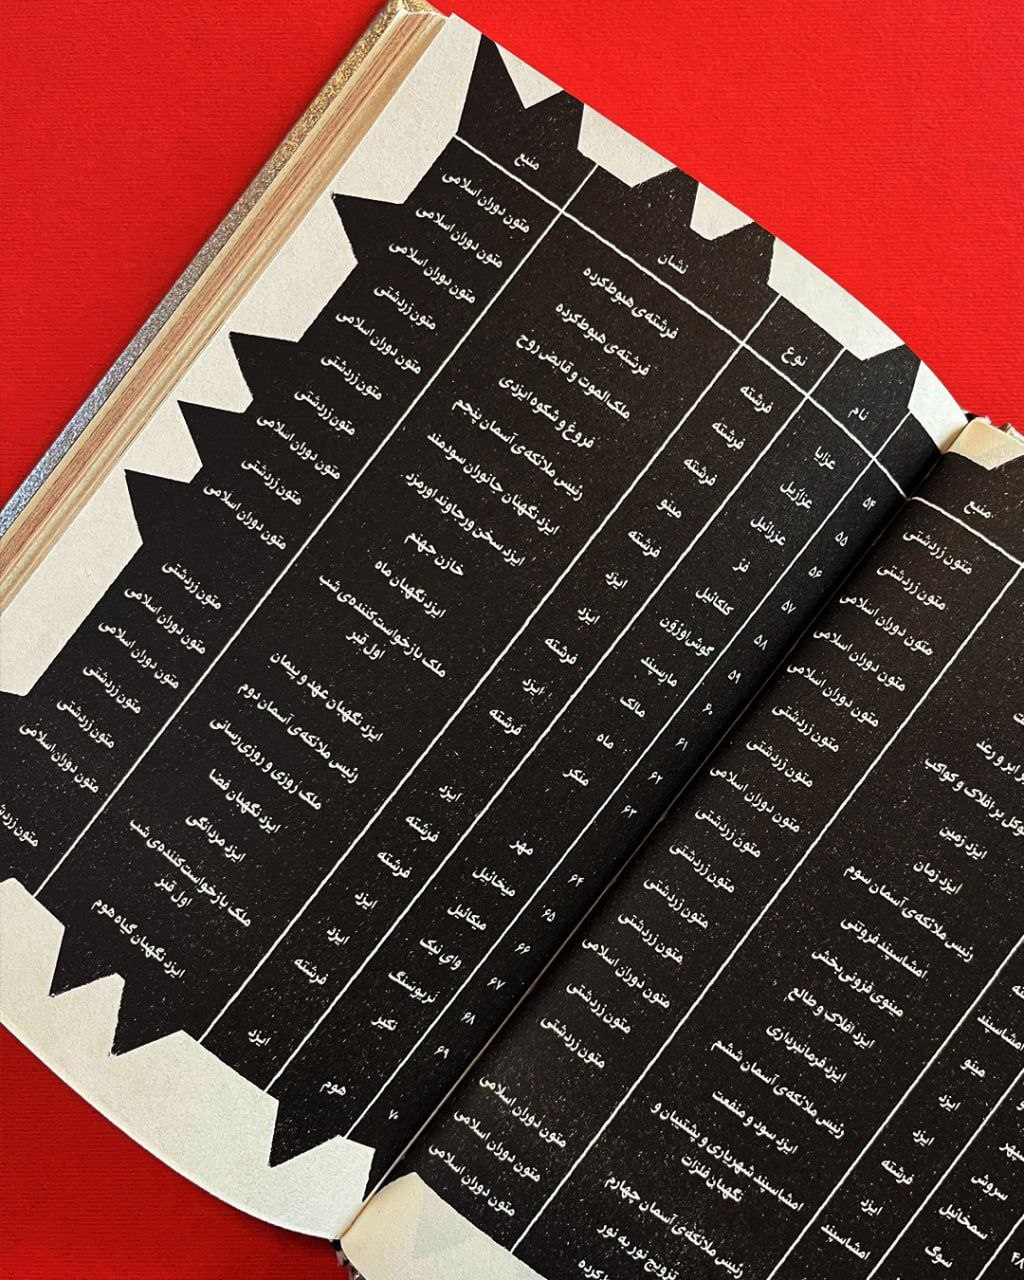 منبع
متون زردشتی
متون زردشتی
متون دوران اسلامی
ابر و رعد متون دوران اسلامی
بر افلاک و کواکب متون دوران اسلامی
ایزد زمین متون زردشتی
ایزد زمان متون زردشتی
رئیس ملائکه‌ی آسمان سوم متون دوران اسلامی
امشاسپند امشاسپند فروتنی متون زردشتی
مینو مینوی فزونی‌بخش متون زردشتی
سپهر ایزد ایزد افلاک و طالع متون زردشتی
سروش ایزد ایزد فرمانبرداری متون زردشتی
سمخائیل فرشته رئیس ملائکه‌ی آسمان ششم متون دوران اسلامی
سوگ ایزد ایزد سود و منفعت متون زردشتی
امشاسپند امشاسپند شهریاری و پشتیبان و متون زردشتی
نگهبان فلزات
رئیس ملائکه‌ی آسمان چهارم متون دوران اسلامی
تزویج نور به نور متون دوران اسلامی
متون دوران اسلامی
نام نوع نشان منبع
۵۴ عزایا فرشته فرشته‌ی هبوط‌کرده متون دوران اسلامی
۵۵ عزازیل فرشته فرشته‌ی هبوط‌کرده متون دوران اسلامی
۵۶ عزرائیل فرشته ملک‌الموت و قابض روح متون دوران اسلامی
۵۷ فر مینو فروغ و شکوه ایزدی متون زردشتی
۵۸ کلکائیل فرشته رئیس ملائکه‌ی آسمان پنجم متون دوران اسلامی
۵۹ گوش‌اورَوَن ایزد ایزد نگهبان جانوران سودمند متون زردشتی
۶۰ مارسپند ایزد ایزد سخن ورجاوند اورمزد متون زردشتی
۶۱ مالک فرشته خازن جهنم متون دوران اسلامی
۶۲ ماه ایزد ایزد نگهبان ماه متون زردشتی
۶۳ منکر فرشته ملک بازخواست‌کننده‌ی شب متون دوران اسلامی
اول قبر
۶۴ مهر ایزد ایزد نگهبان عهد و پیمان متون زردشتی
۶۵ میخائیل فرشته رئیس ملائکه‌ی آسمان دوم متون دوران اسلامی
۶۶ میکائیل فرشته ملک روزی و روزی رسانی متون دوران اسلامی
۶۷ وای نیک ایزد ایزد نگهبان فضا متون زردشتی
۶۸ نریوسنگ ایزد ایزد مردانگی متون زردشتی
۶۹ نکیر فرشته ملک بازخواست‌کننده‌ی شب متون دوران اسلامی
اول قبر
۷۰ هوم ایزد ایزد نگهبان گیاه هوم متون زردشتی